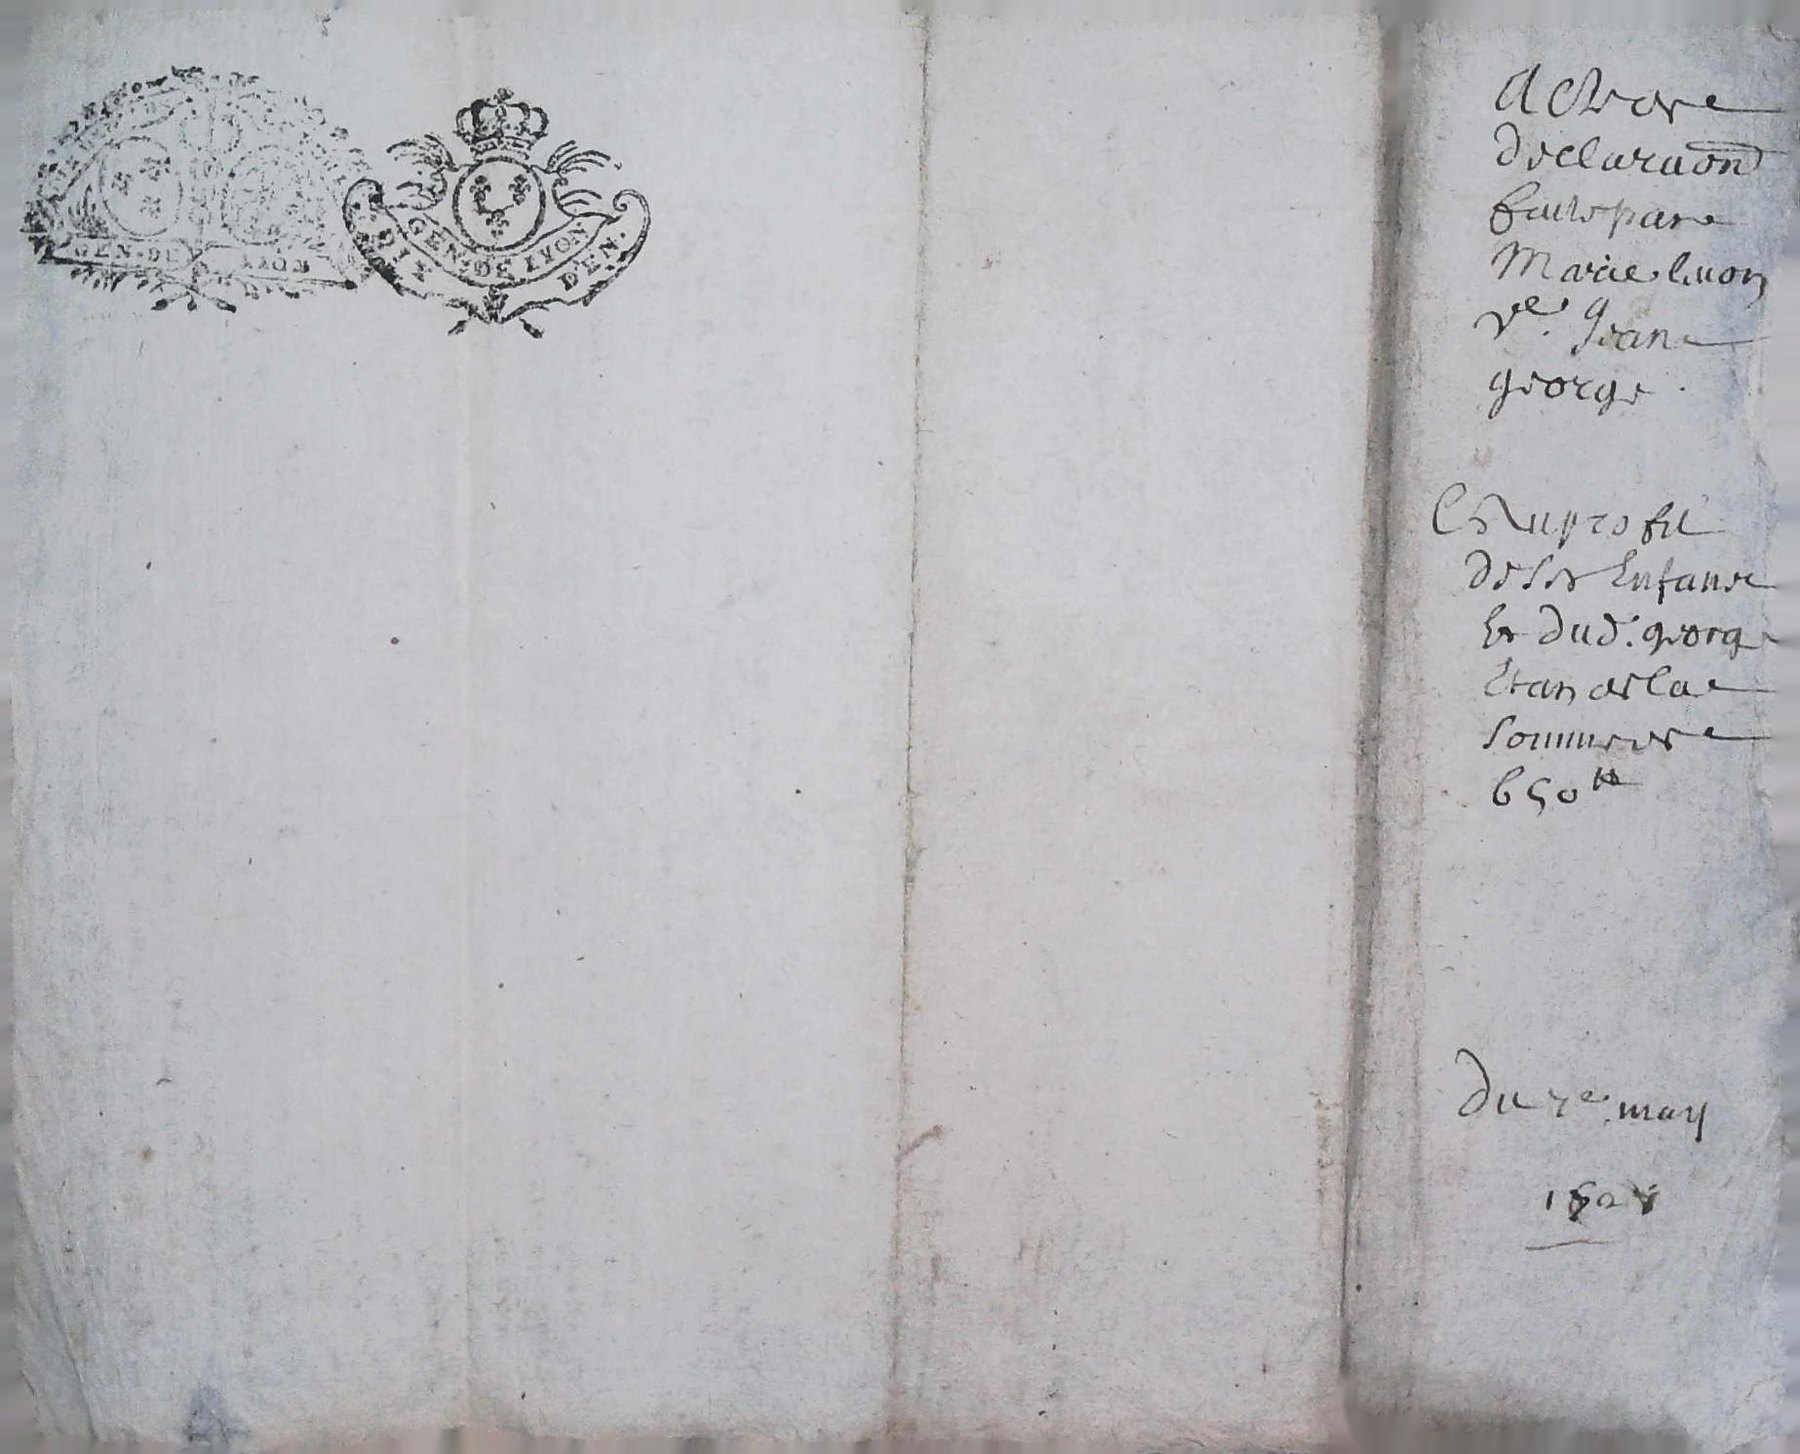 GEN. DE LYON
GEN. DE LYON
DIX DEN.
Acte de
declaraon
faitte par
Marie
ve. Jean
george.
Et au profit
de ses Enfans
Et dud. george
de la
somme de
650 ₶
Du 7e. may